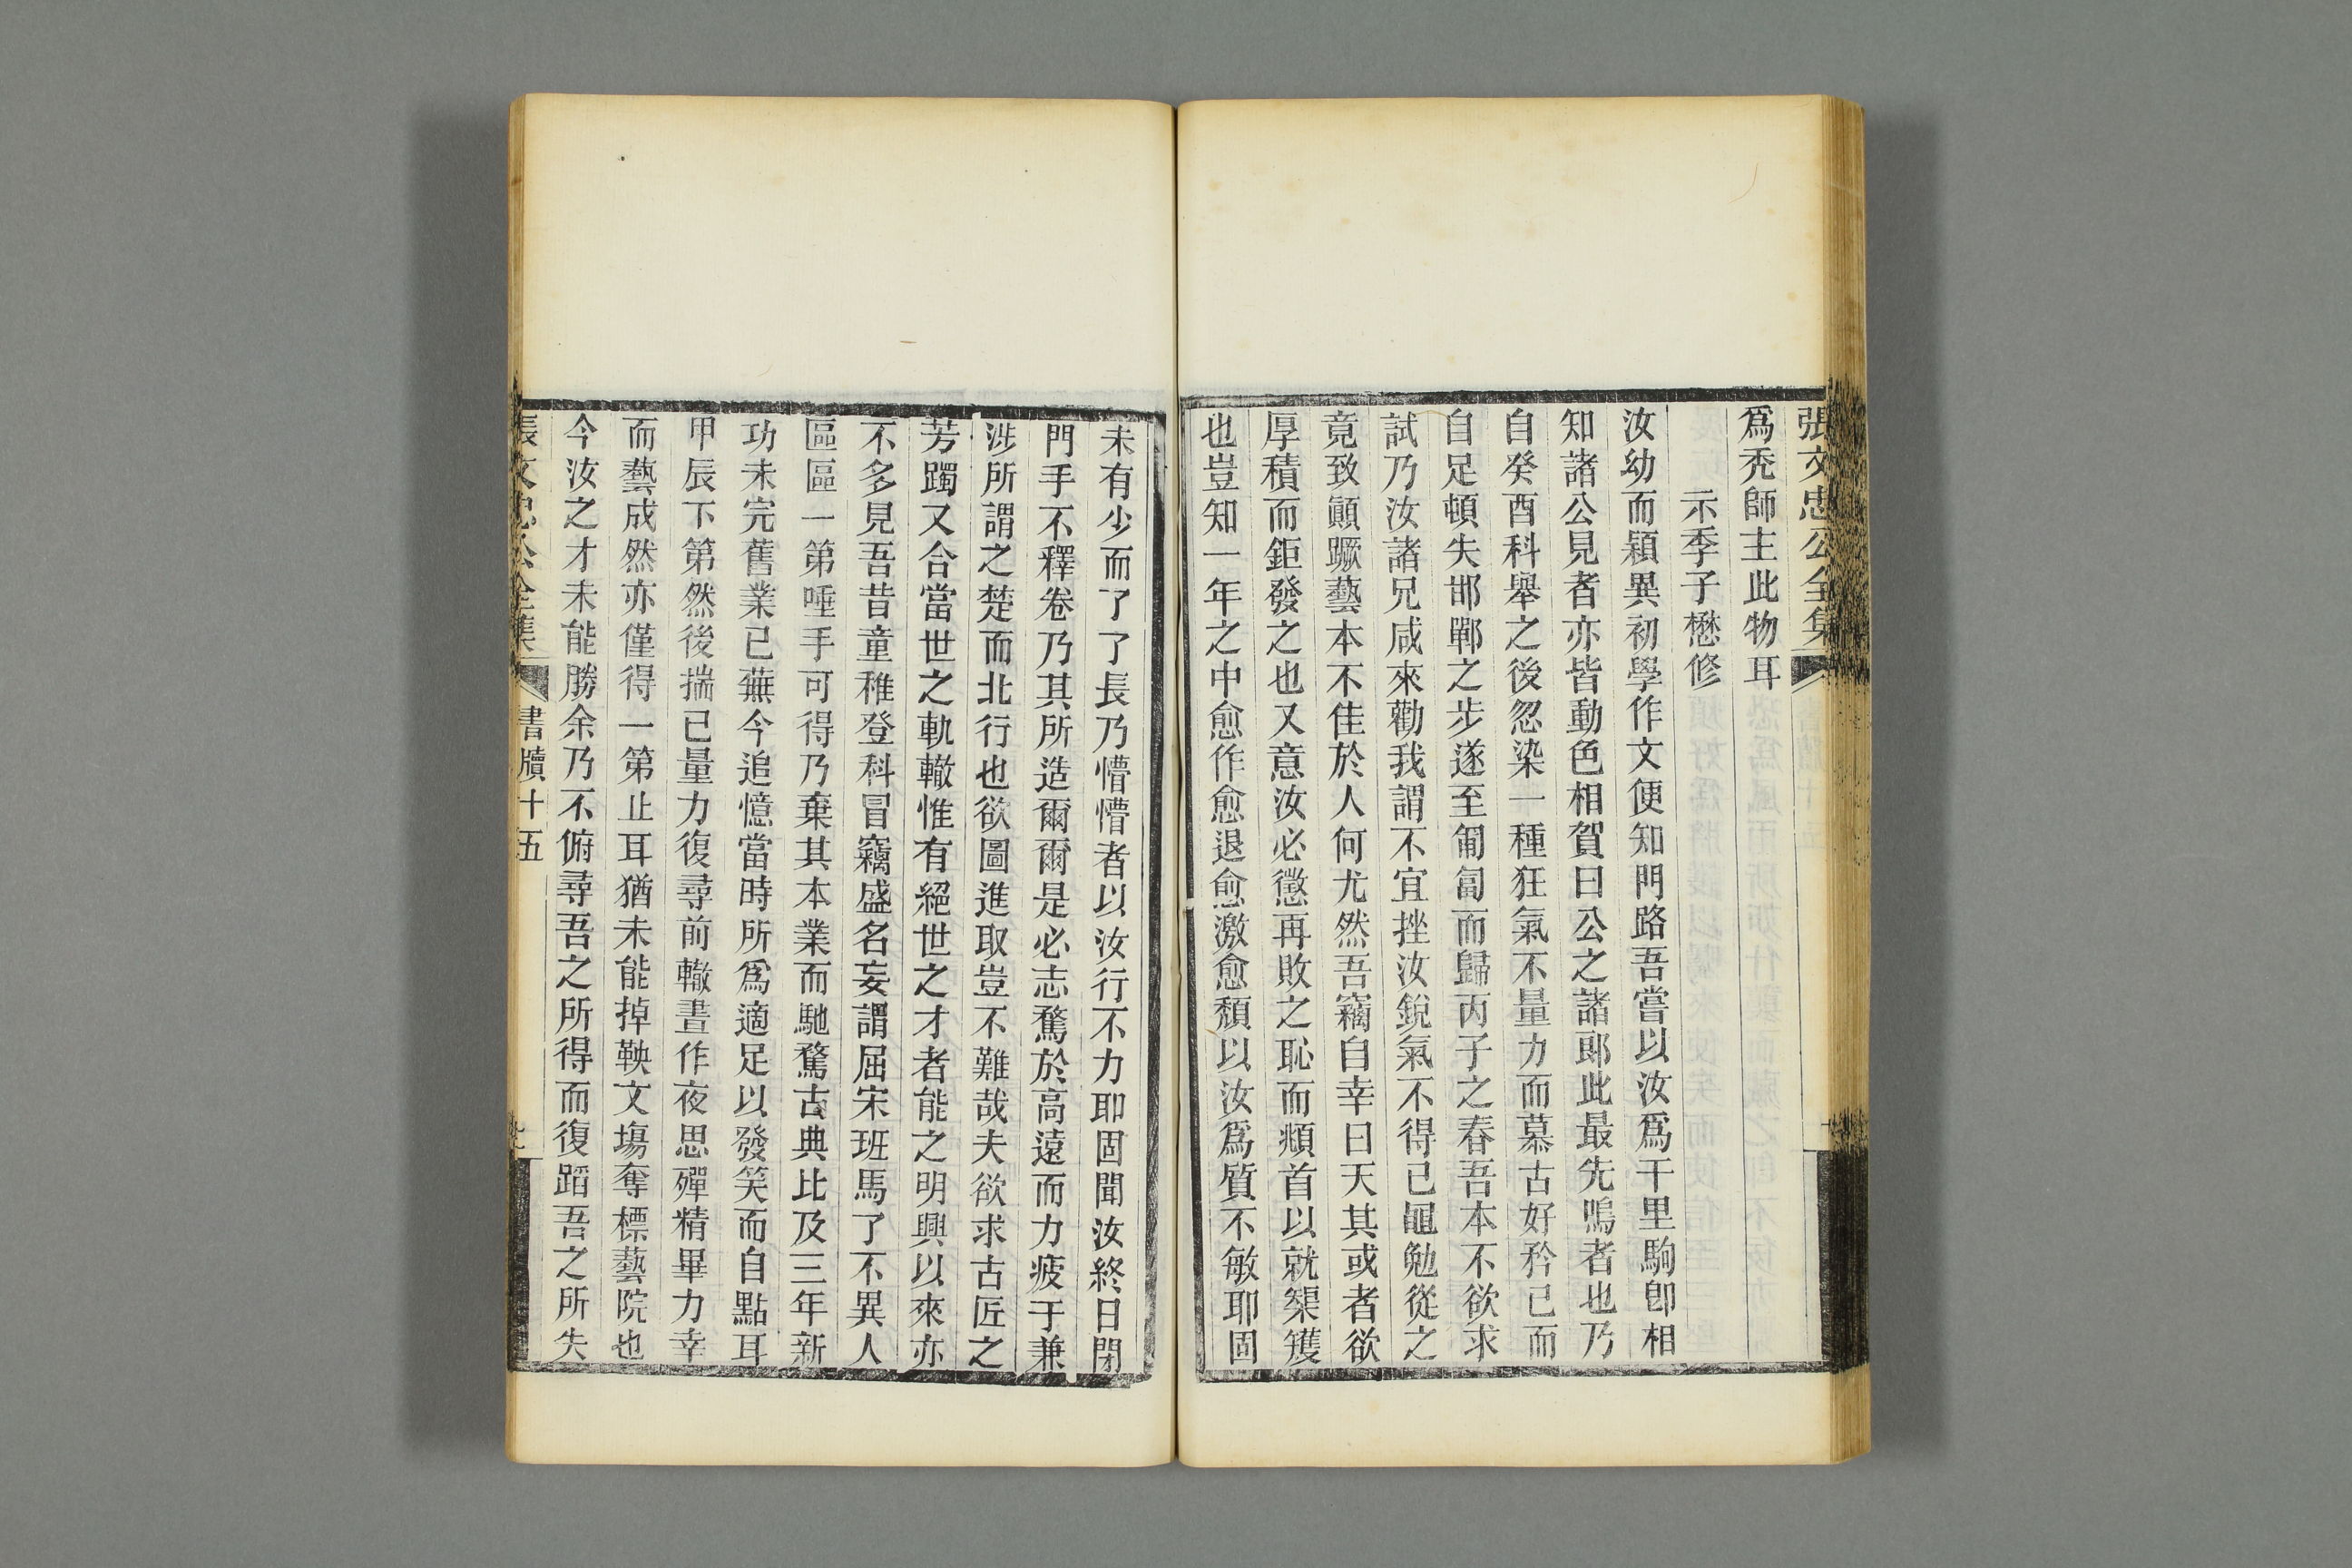 張文忠公全集
爲禿師主此物耳
示季子懋修
汝幼而穎異初學作文便知門路吾嘗以汝爲千里駒卽相
知諸公見者亦皆動色相賀曰公之諸郎此最先鳴者也乃
自癸酉科舉之後忽染一種狂氣不量力而慕古好矜己而
自足頓失邯鄲之步遂至匍匐而歸丙子之春吾本不欲求
試乃汝諸兄咸來勸我謂不宜挫汝銳氣不得已黽勉從之
竟致顚蹶藝本不佳於人何尤然吾竊自幸曰天其或者欲
厚積而鉅發之也又意汝必懲再敗之恥而頫首以就榘矱
也豈知一年之中愈作愈退愈激愈頹以汝爲質不敏耶固
未有少而了了長乃懵懵者以汝行不力耶固聞汝終日閉
門手不釋卷乃其所造爾爾是必志騖於高遠而力疲于兼
涉所謂之楚而北行也欲圖進取豈不難哉夫欲求古匠之
芳躅又合當世之軌轍惟有絕世之才者能之明興以來亦
不多見吾昔童稚登科冒竊盛名妄謂屈宋班馬了不異人
區區一第唾手可得乃棄其本業而馳騖古典比及三年新
功未完舊業已蕪今追憶當時所爲適足以發笑而自點耳
甲辰下第然後揣己量力復尋前轍晝作夜思殫精畢力幸
而藝成然亦僅得一第止耳猶未能掉鞅文塲奪標藝院也
今汝之才未能勝余乃不俯尋吾之所得而復蹈吾之所失
張文忠公全集 書牘十五